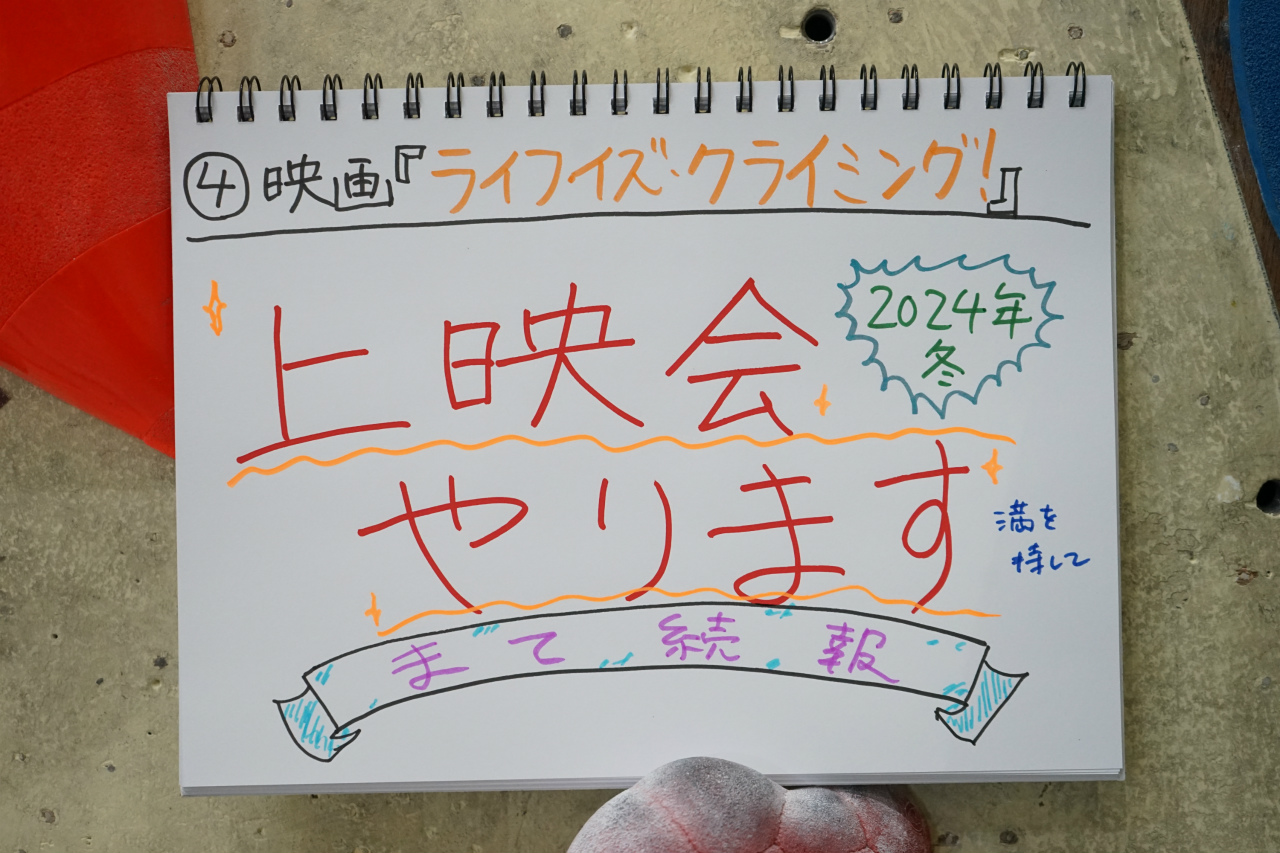 ④映画『ライフイズ・クライミング!』
2024年
冬
上映会
やります
満を
持して
まて続報